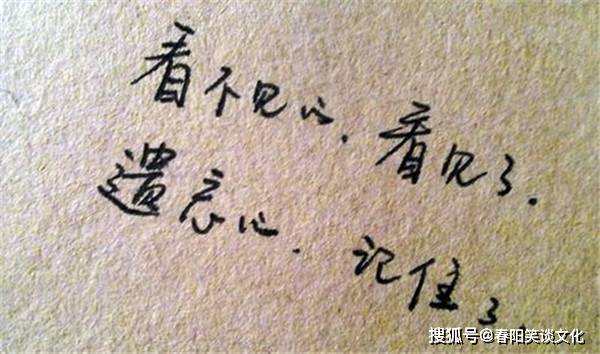 看不见的，看见了。
遺忘的，记住了
搜狐号@春阳笑谈文化